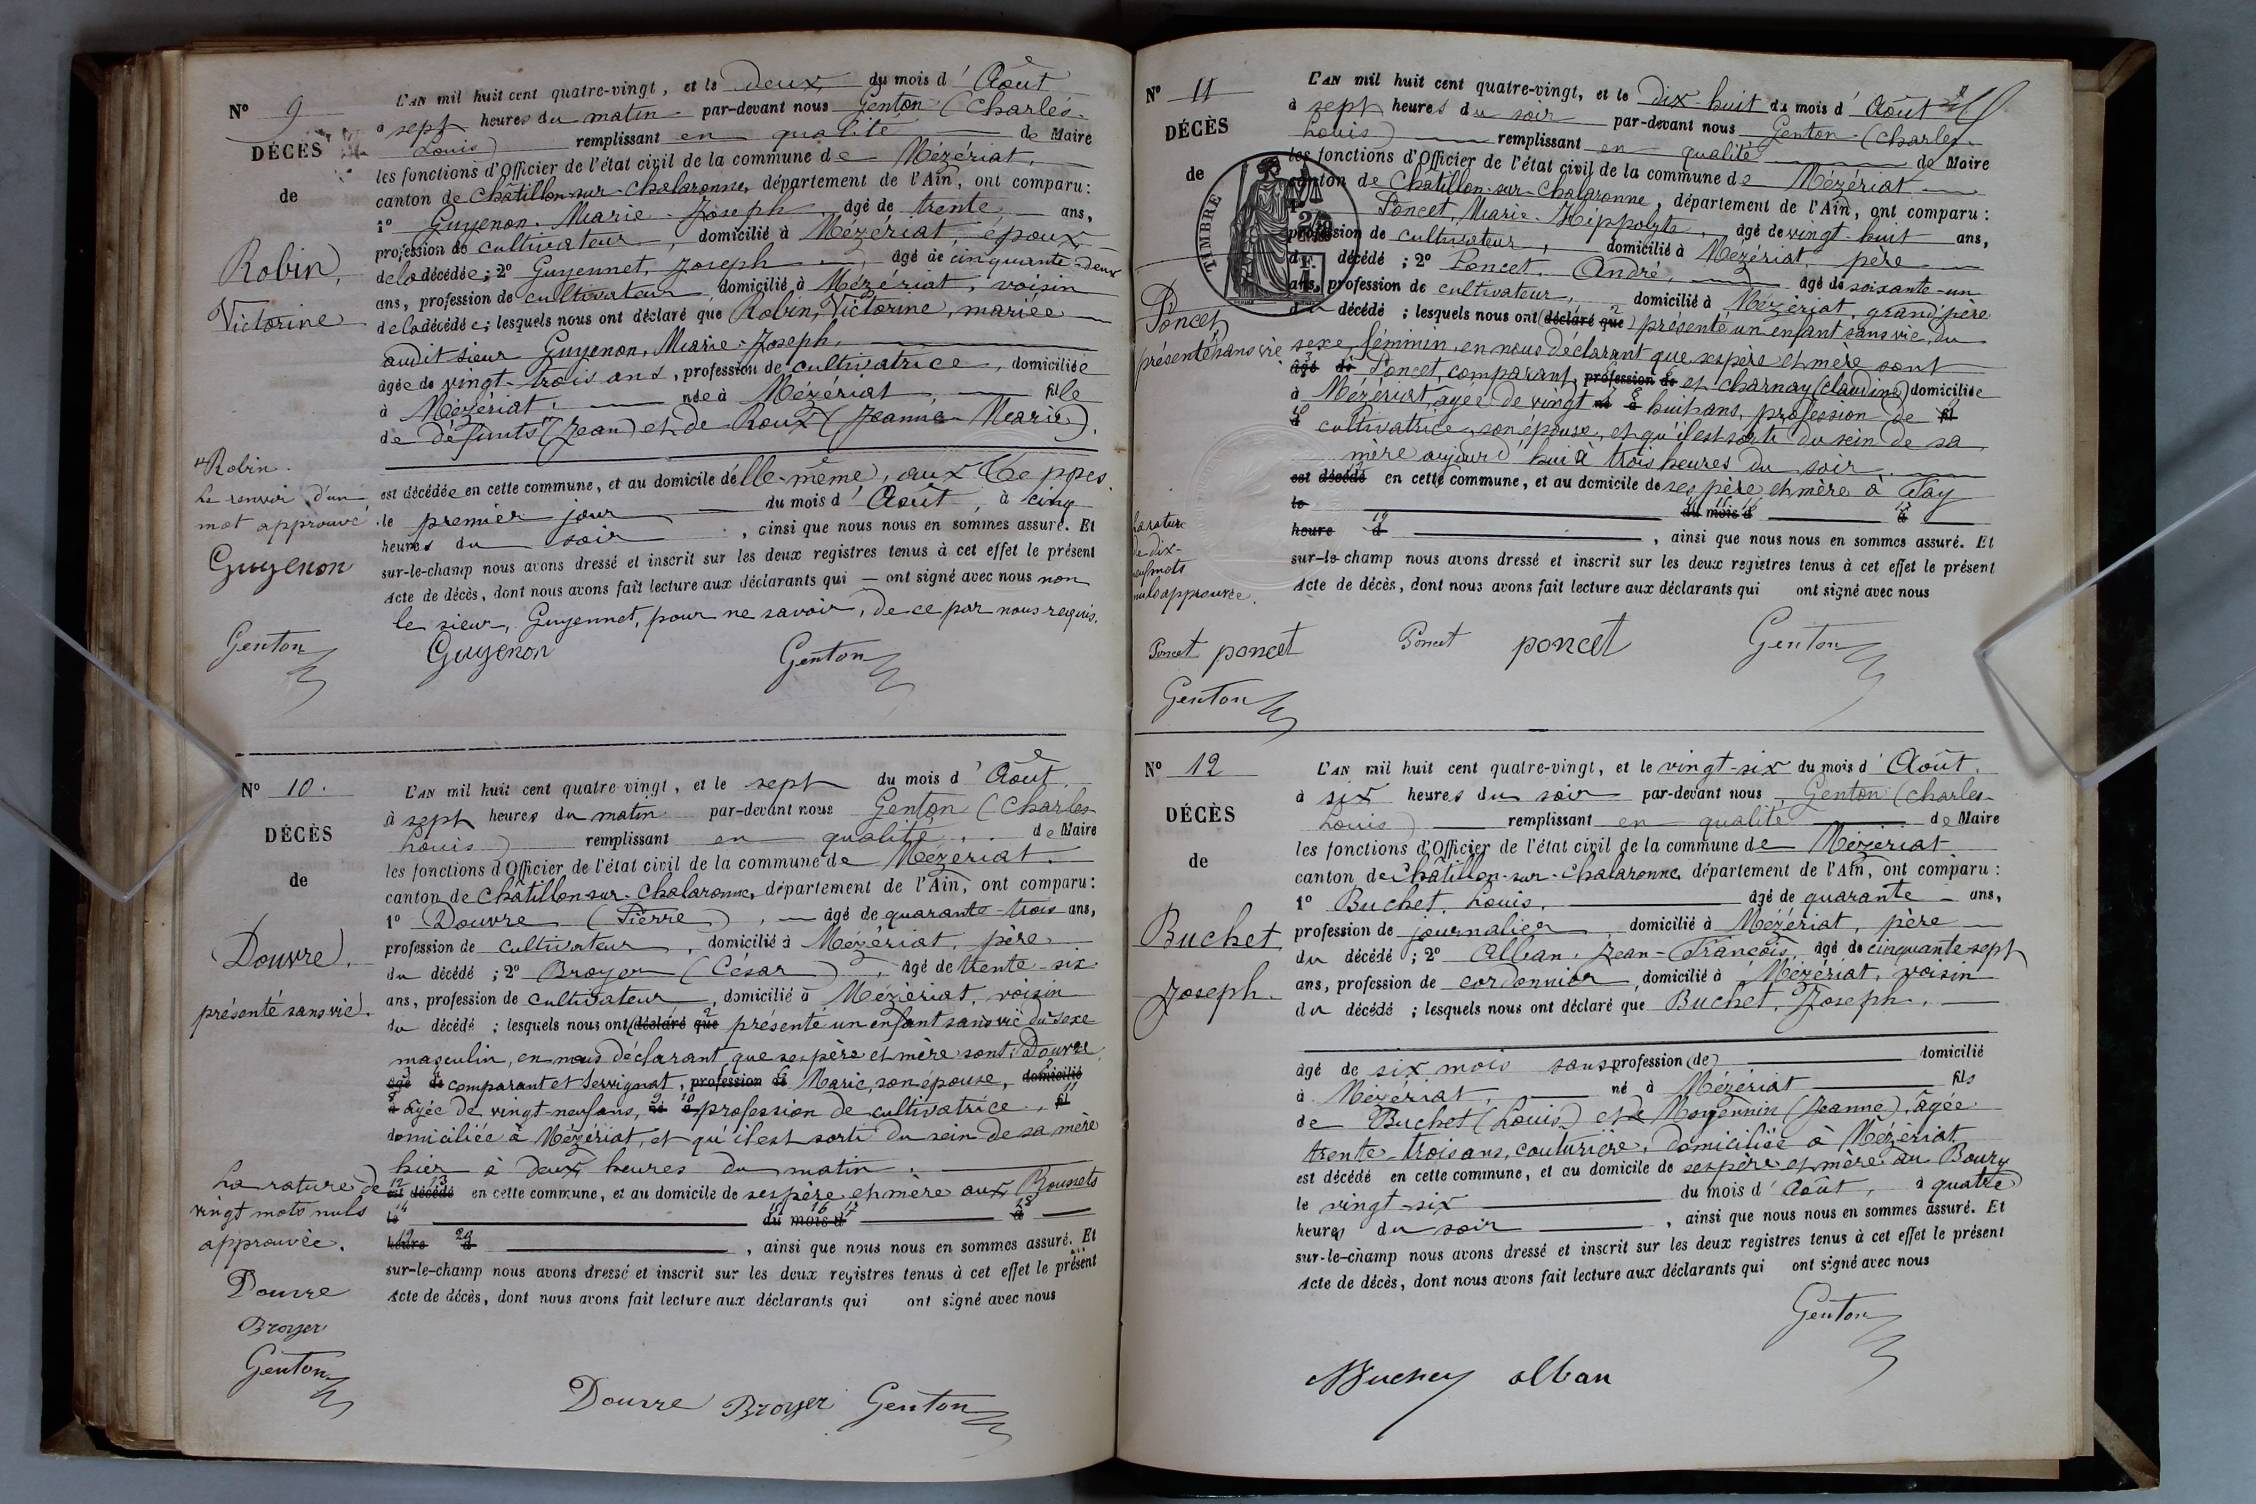 N° 9
DÉCÈS
de
Robin,
Victorine
L'AN mil huit cent quatre-vingt, et le deux du mois d'Août
à sept heures du matin par-devant nous Genton (Charles-
Louis) remplissant en qualité de Maire
les fonctions d'Officier de l'état civil de la commune de Mézériat,
canton de Châtillon-sur-Chalaronne, département de l'Ain, ont comparu:
1° Guyenon, Marie-Joseph, âgé de trente ans,
profession de cultivateur, domicilié à Mézériat, époux
de la décédée; 2° Guyennet, Joseph, âgé de cinquante-deux
ans, profession de cultivateur, domicilié à Mézériat, voisin
de la décédée; lesquels nous ont déclaré que Robin, Victorine, mariée
audit sieur Guyenon, Marie-Joseph,
âgée de vingt-trois ans, profession de cultivatrice, domiciliée
à Mézériat, née à Mézériat, fille
de défunts (Jean) et de Roux (Jeanne Marie).
est décédée en cette commune, et au domicile d'elle-même, aux
le premier jour du mois d'Août, à cinq
heures du soir, ainsi que nous nous en sommes assuré. Et
sur-le-champ nous avons dressé et inscrit sur les deux registres tenus à cet effet le présent
Acte de décès, dont nous avons fait lecture aux déclarants qui — ont signé avec nous non
le sieur, Guyennet, pour ne savoir, de ce par nous requis.
Robin.
Le renvoi d'un
mot approuvé
Guyenon
Genton
Guyenon Genton
N° 10.
DÉCÈS
de
Douvre,
présenté sans vie.
L'AN mil huit cent quatre-vingt, et le sept du mois d'Août
à sept heures du matin par-devant nous Genton (Charles
Louis) remplissant en qualité de Maire
les fonctions d'Officier de l'état civil de la commune de Mézériat.
canton de Châtillon-sur-Chalaronne, département de l'Ain, ont comparu:
1° Douvre (Pierre), âgé de quarante-trois ans,
profession de cultivateur, domicilié à Mézériat, père
du décédé; 2° Broyer (César), âgé de trente-six
ans, profession de cultivateur, domicilié à Mézériat, voisin
du décédé; lesquels nous ont (déclaré que présenté un enfant sans vie du sexe
masculin, en nous déclarant que ses père et mère sont: Douvre
âgé de comparant et Servignat, profession de Marie, son épouse, domicilié
à âgée de vingt-neuf ans, né à profession de cultivatrice, fil
domiciliée à Mézériat, et qu'il est sorti du sein de sa mère
hier à deux heures du matin.
est décédé en cette commune, et au domicile de ses père et mère aux Boussets
le du mois d' à
heure d , ainsi que nous nous en sommes assuré. Et
sur-le-champ nous avons dressé et inscrit sur les deux registres tenus à cet effet le présent
Acte de décès, dont nous avons fait lecture aux déclarants qui ont signé avec nous
La rature de
vingt mots nuls
approuvée.
Douvre
Broyer
Genton
Douvre Broyer Genton
N° 11
DÉCÈS
de
TIMBRE
Poncet,
présenté sans vie
L'AN mil huit cent quatre-vingt, et le dix-huit du mois d'Août
à sept heures du soir par-devant nous Genton (Charles-
Louis) remplissant en qualité de Maire
les fonctions d'Officier de l'état civil de la commune de Mézériat
canton de Châtillon-sur-Chalaronne, département de l'Ain, ont comparu:
Poncet, Marie-Hippolyte, âgé de vingt-huit ans,
profession de cultivateur, domicilié à Mézériat père
du décédé; 2° Poncet, André, âgé de soixante-un
ans, profession de cultivateur, domicilié à Mézériat, grand'père
du décédé; lesquels nous ont (déclaré que) présenté un enfant sans vie, du
sexe féminin, en nous déclarant que ses père et mère sont
âgé de Poncet, comparant, profession de et Charnay (Claudine) domiciliée
à Mézériat, âgée de vingt né à huit ans, profession de fil
d cultivatrice, son épouse, et qu'il est sorti du sein de sa
mère aujourd'hui à trois heures du soir.
est décédé en cette commune, et au domicile de ses père et mère à Fay
le du mois d' à
heure d , ainsi que nous nous en sommes assuré. Et
sur-le-champ nous avons dressé et inscrit sur les deux registres tenus à cet effet le présent
Acte de décès, dont nous avons fait lecture aux déclarants qui ont signé avec nous
La rature
de dix-
neuf mots
nuls approuvée.
Poncet poncet Poncet poncet Genton
Genton
N° 12
DÉCÈS
de
Buchet
Joseph.
L'AN mil huit cent quatre-vingt, et le vingt-six du mois d'Août.
à six heures du soir par-devant nous Genton (Charles-
Louis) remplissant en qualité de Maire
les fonctions d'Officier de l'état civil de la commune de Mézériat
canton de Châtillon-sur-Chalaronne, département de l'Ain, ont comparu:
1° Buchet, Louis, âgé de quarante ans,
profession de journalier, domicilié à Mézériat, père
du décédé; 2° Alban, Jean-François, âgé de cinquante-sept
ans, profession de cordonnier, domicilié à Mézériat, voisin
du décédé; lesquels nous ont déclaré que Buchet, Joseph,
âgé de six mois sans profession (de) domicilié
à Mézériat, né à Mézériat fils
de Buchet (Louis) et de Moyennin (Jeanne), âgée
trente-trois ans, couturière, domiciliée à Mézériat
est décédé en cette commune, et au domicile de ses père et mère au Bourg
le vingt-six du mois d'Août, à quatre
heures du soir, ainsi que nous nous en sommes assuré. Et
sur-le-champ nous avons dressé et inscrit sur les deux registres tenus à cet effet le présent
Acte de décès, dont nous avons fait lecture aux déclarants qui ont signé avec nous
Genton
alban